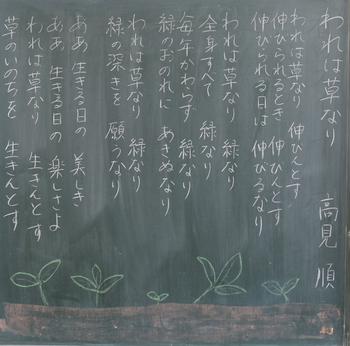 われは草なり 高見 順
われは草なり 伸びんとす
伸びられるとき 伸びんとす
伸びられる日は 伸びるなり
われは草なり 緑なり
全身すべて 緑なり
毎年かわらず 緑なり
緑のおのれに あきぬなり
われは草なり 緑なり
緑の深きを 願うなり
ああ 生きる日の 美しき
ああ 生きる日の 楽しさよ
われは草なり 生きんとす
草のいのちを 生きんとす